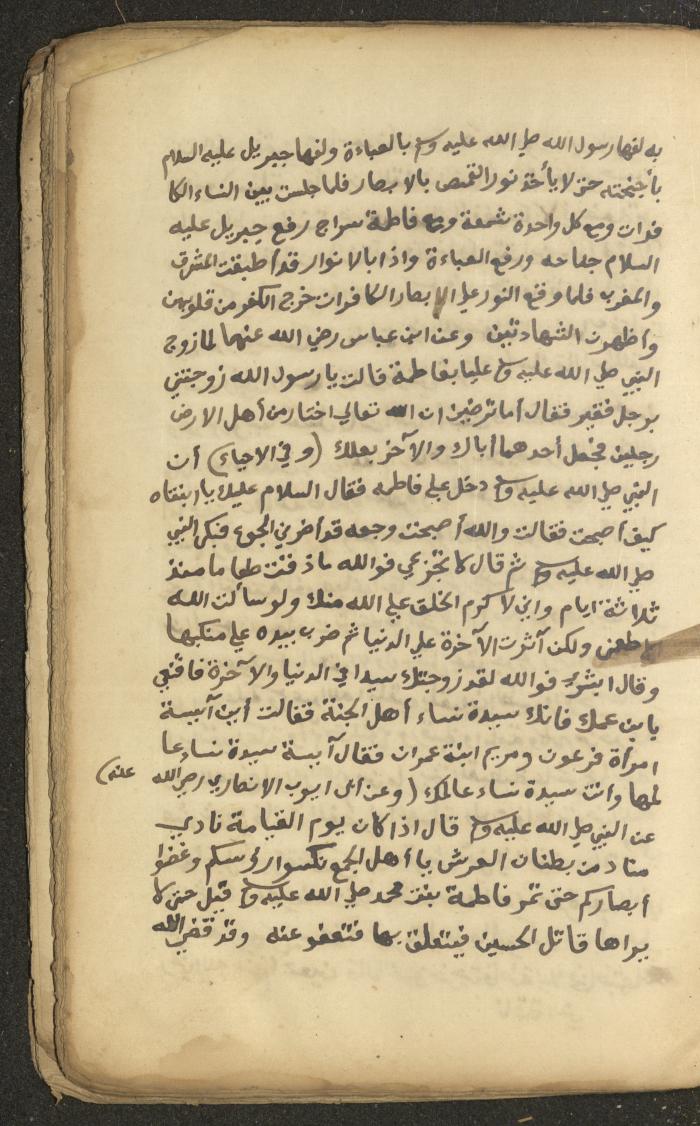 به لفها رسول الله صلى الله عليه وسلم بالعباءة ولفها جبريل عليه السلام
بأجنحته حتى لا يأخذ نور القمص بالابصار فلما جلست بين النساء الكا
فرات ومع كل واحدة شمعة ومع فاطمة سراج رفع جبريل عليه
السلام جناحه ورفع العباءة واذا بالانوار قد أطبقت المشرق
والمغرب فلما وقع النور على الابصار الكافرات خرج الكفر من قلوبهن
وأظهرت الشهادتين وعن ابن عباس رضي الله عنهما لما زوج
النبي صلى الله عليه وسلم عليا بفاطمة قالت يا رسول الله زوجتني
برجل فقير فقال أما ترضين ان الله تعالى اختار من أهل الارض
رجلين فجعل أحدهما أباك والآخر بعلك (وفي الاحياء) أن
النبي صلى الله عليه وسلم دخل على فاطمه فقال السلام عليك يا ابنتاه
كيف أصبحت فقالت والله أصبحت وجعه قد أضربي الجوع فبكى النبي
صلى الله عليه وسلم ثم قال لا تجزعي فوالله ما ذقنت طعاما منذ
ثلاثة ايام واني لاكرم الخلق على الله منك ولو سألت الله
لاطعمني ولكن آثرت الآخرة على الدنيا ثم ضرب بيده على منكبها
وقال ابشري فوالله لقد زوجتك سيدا في الدنيا والآخرة فاقنعي
يا بن عمك فانك سيدة نساء أهل الجنة فقالت أين آسية
امرأة فرعون ومريم ابنة عمران فقال آسية سيدة نساء عا
لمها وأنت سيدة نساء عالمك (وعن أبى ايوب الانصاري رضي الله عنه)
عن النبي صلى الله عليه وسلم قال اذا كان يوم القيامة نادي
مناد من بطنان العرش يا أهل الجمع نكسوا رؤسكم وغضوا
أبصاركم حتى تمر فاطمة بنت محمد صلى الله عليه وسلم قيل حتى لا
يراها قاتل الحسين فيتعلق بها فتعفو عنه وقد قضى الله